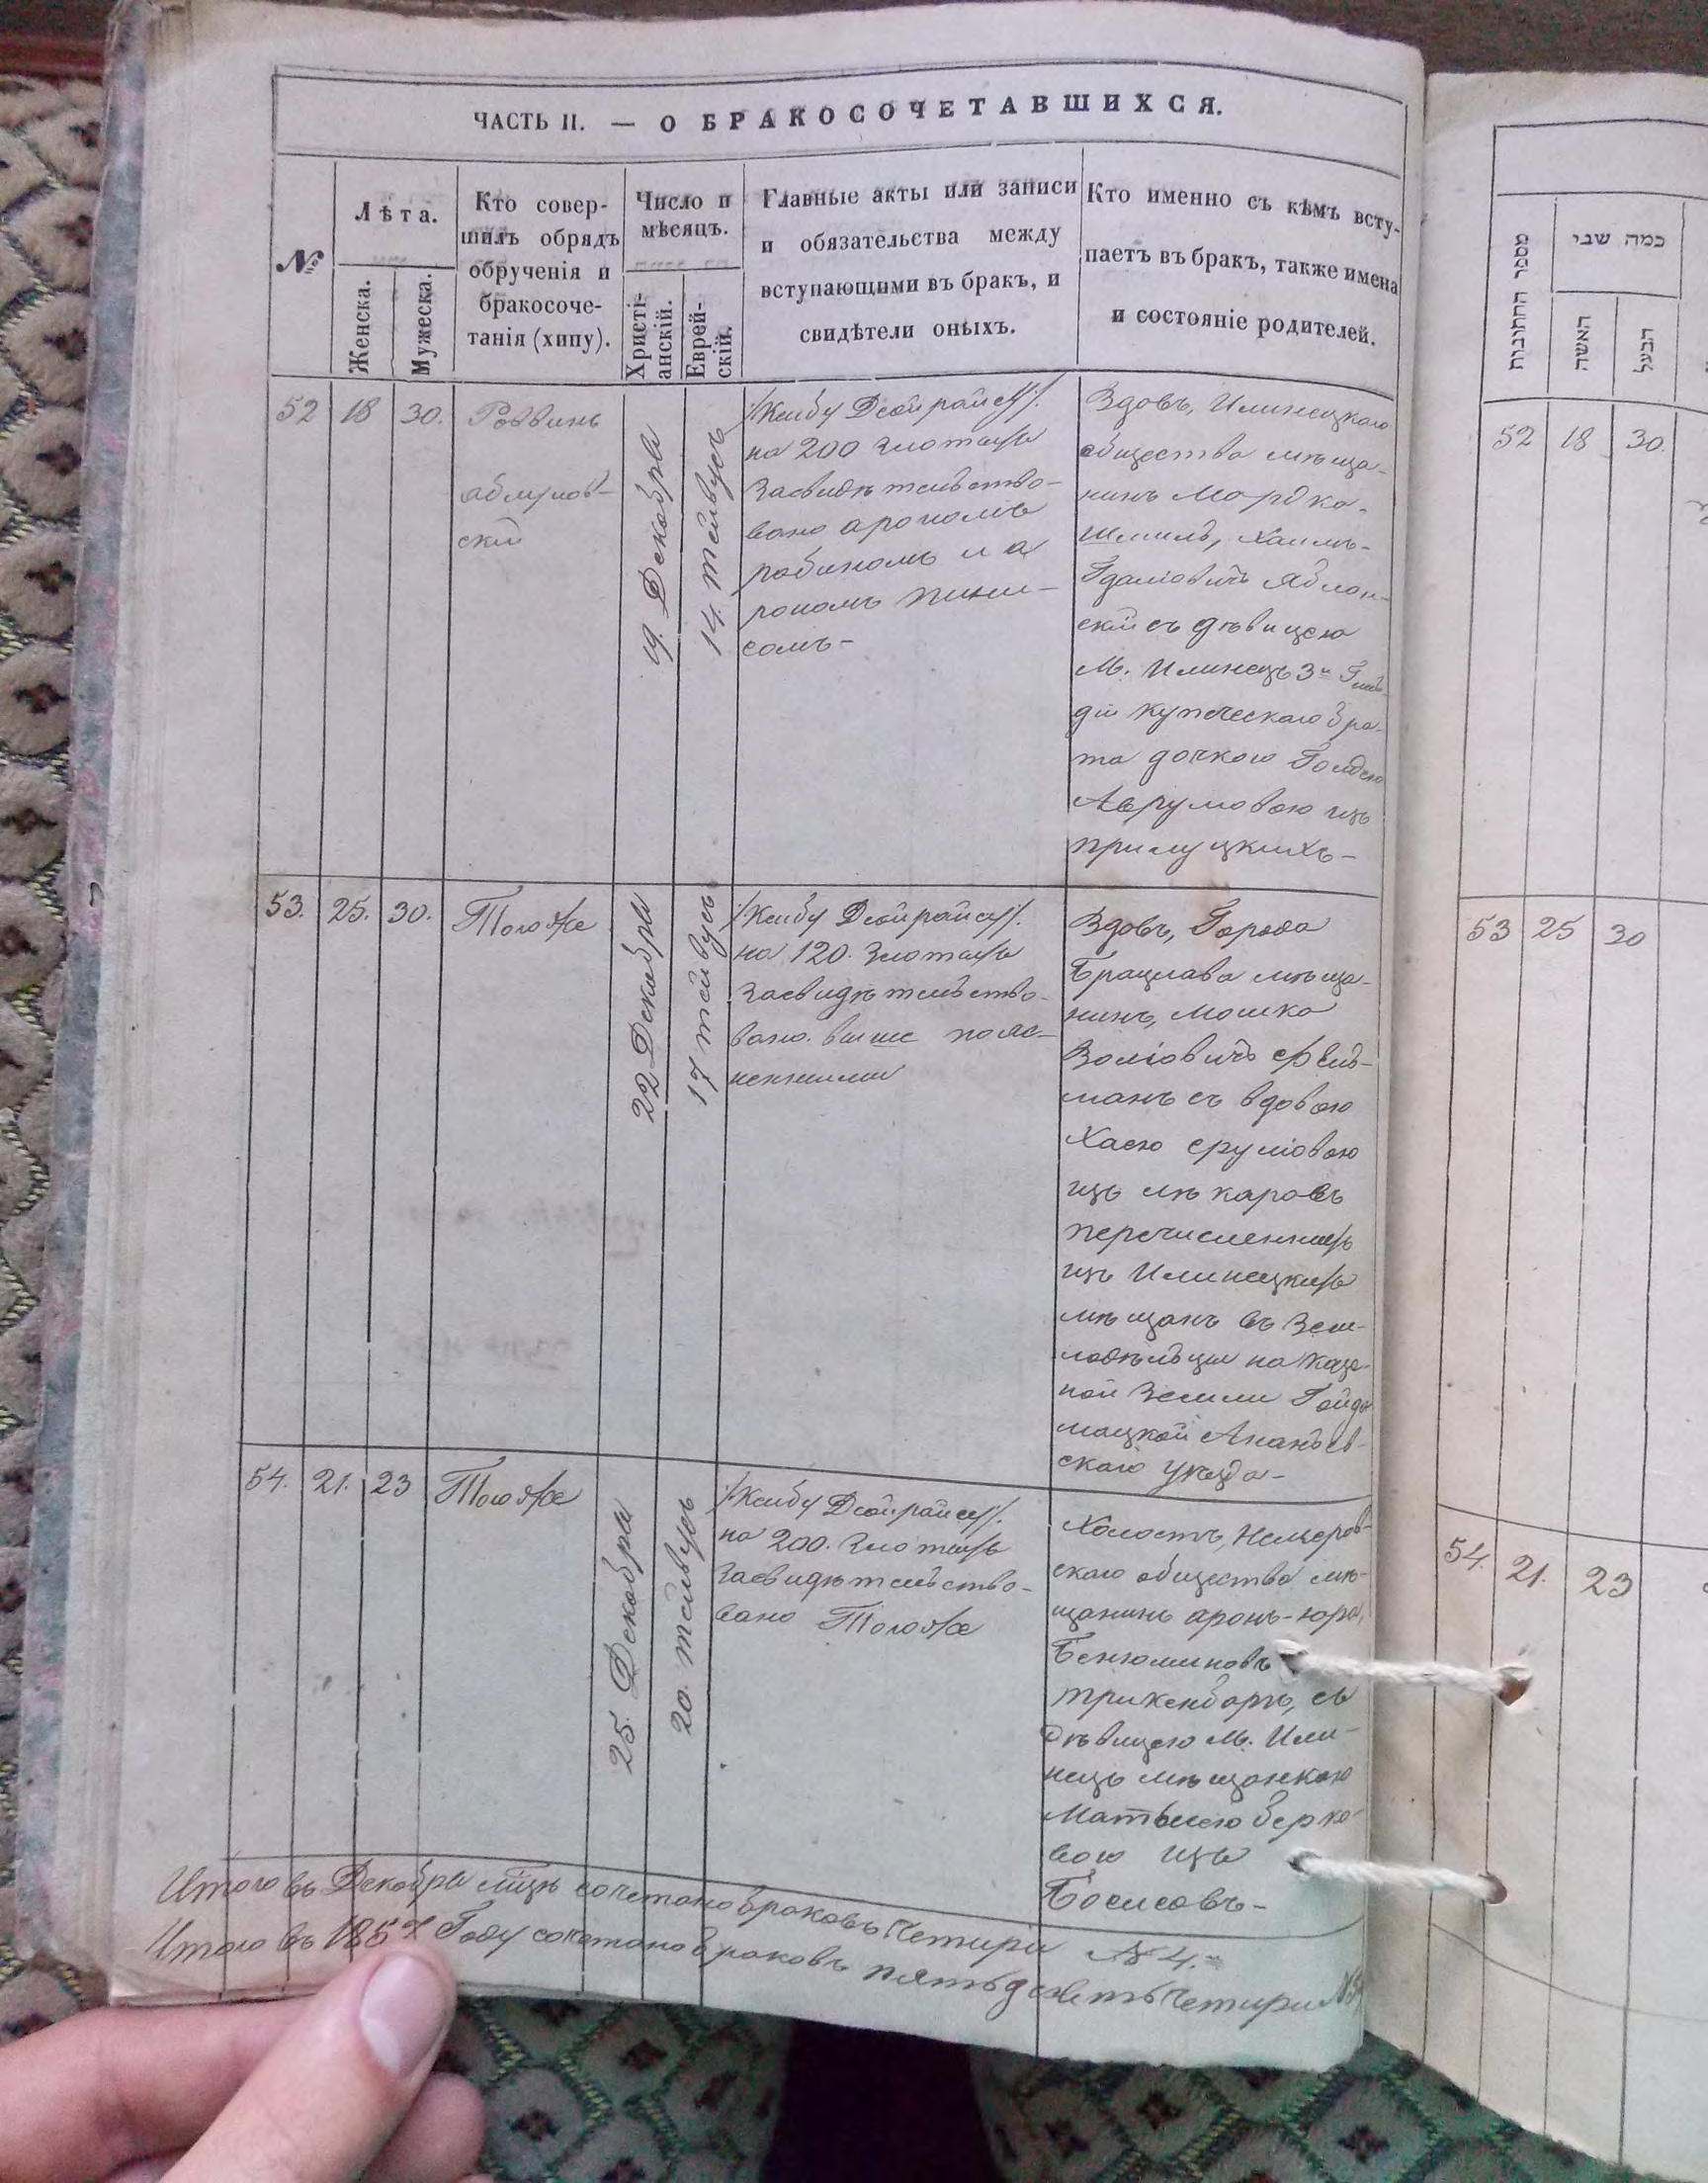 ЧАСТЬ II. — О БРАКОСОЧЕТАВШИХСЯ.
№
Лѣта.
Женска.
Мужеска.
Кто совер-
шилъ обрядъ
обрученія и
бракосоче-
танія (хипу).
Число и
мѣсяцъ.
Христі-
анскій.
Еврей-
скій.
Главные акты или записи
и обязательства между
вступающими въ бракъ, и
свидѣтели оныхъ.
Кто именно съ кѣмъ всту-
паетъ въ бракъ, также имена
и состояніе родителей.
52
18
30.
Раввинъ
скій
19. Декабря
14. тейвусъ
на 200 злотыхъ
засвидѣтельство-
вано
рабиномъ и а
сомъ-
Вдовъ, Илинецкаго
общества мѣща-
нинъ Мордко-
Шмиль, Хаимъ-
скій съ дѣвицею
М. Илинецъ 3й Гиль-
діи купеческаго бра-
та дочкою Голдею
Аврумовою изъ
прилуцкихъ-
53.
25.
30.
Тогоже
22 Декабря
17 тейвусъ
на 120. злотыхъ
засвидѣтельство-
вано. выше пояс-
ненными
Вдовъ, Города
Брацлава мѣща-
нинъ, Мошко
Волювичъ Фель-
манъ съ вдовою
Хаею Сруліовою
изъ
перечисленныхъ
изъ Илинецкихъ
мѣщанъ въ зем-
ледѣльцы на казе-
ной земли Гайда-
мацкой Ананьев-
скаго уѣзда-
54.
21.
23
Тогоже
25. Декабря
20. тейвусъ
на 200. злотыхъ
засвидѣтельство-
вано Тогоже
Холостъ, Немиров-
скаго общества мѣ-
щанинъ аронъ-юра,
Бенюминовъ
съ
дѣвицею М. Или-
нецъ мѣщанкою
берко-
вою изъ
Итого въ Декабрѣ мѣцѣ сочетано браковъ Четыри № 4.
Итого въ 1857 Году сочетано браковъ пятьдесетъ Четыри
מספר החתונות
כמה שני
האשה
הבעל
52
18
30.
53
25
30
54.
21.
23